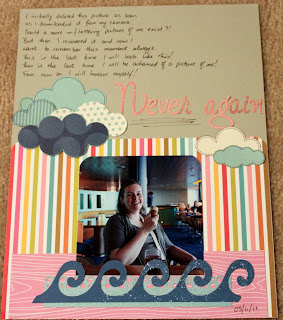 I initially deleted this picture as soon
as I downloaded it from my camera.
Could a more unflattering picture of me exist?!
But then I recovered it and now I
want to remember this moment always.
This is the last time I will look like this!
This is the last time I will be ashamed of a picture of me!
From now on I will honour myself!
Never again